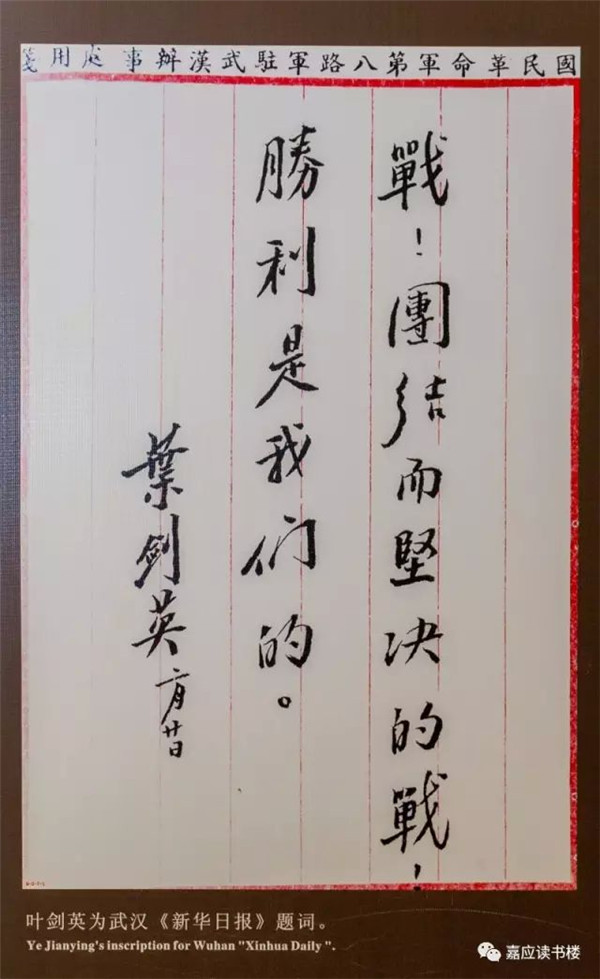 國民革命軍第八路軍駐武漢辦事處用箋
戰！團结而堅决的戰！
勝利是我们的。
葉劍英 二月廿日
叶剑英为武汉《新华日报》题词。
Ye Jianying's inscription for Wuhan "Xinhua Daily ".
嘉应读书楼